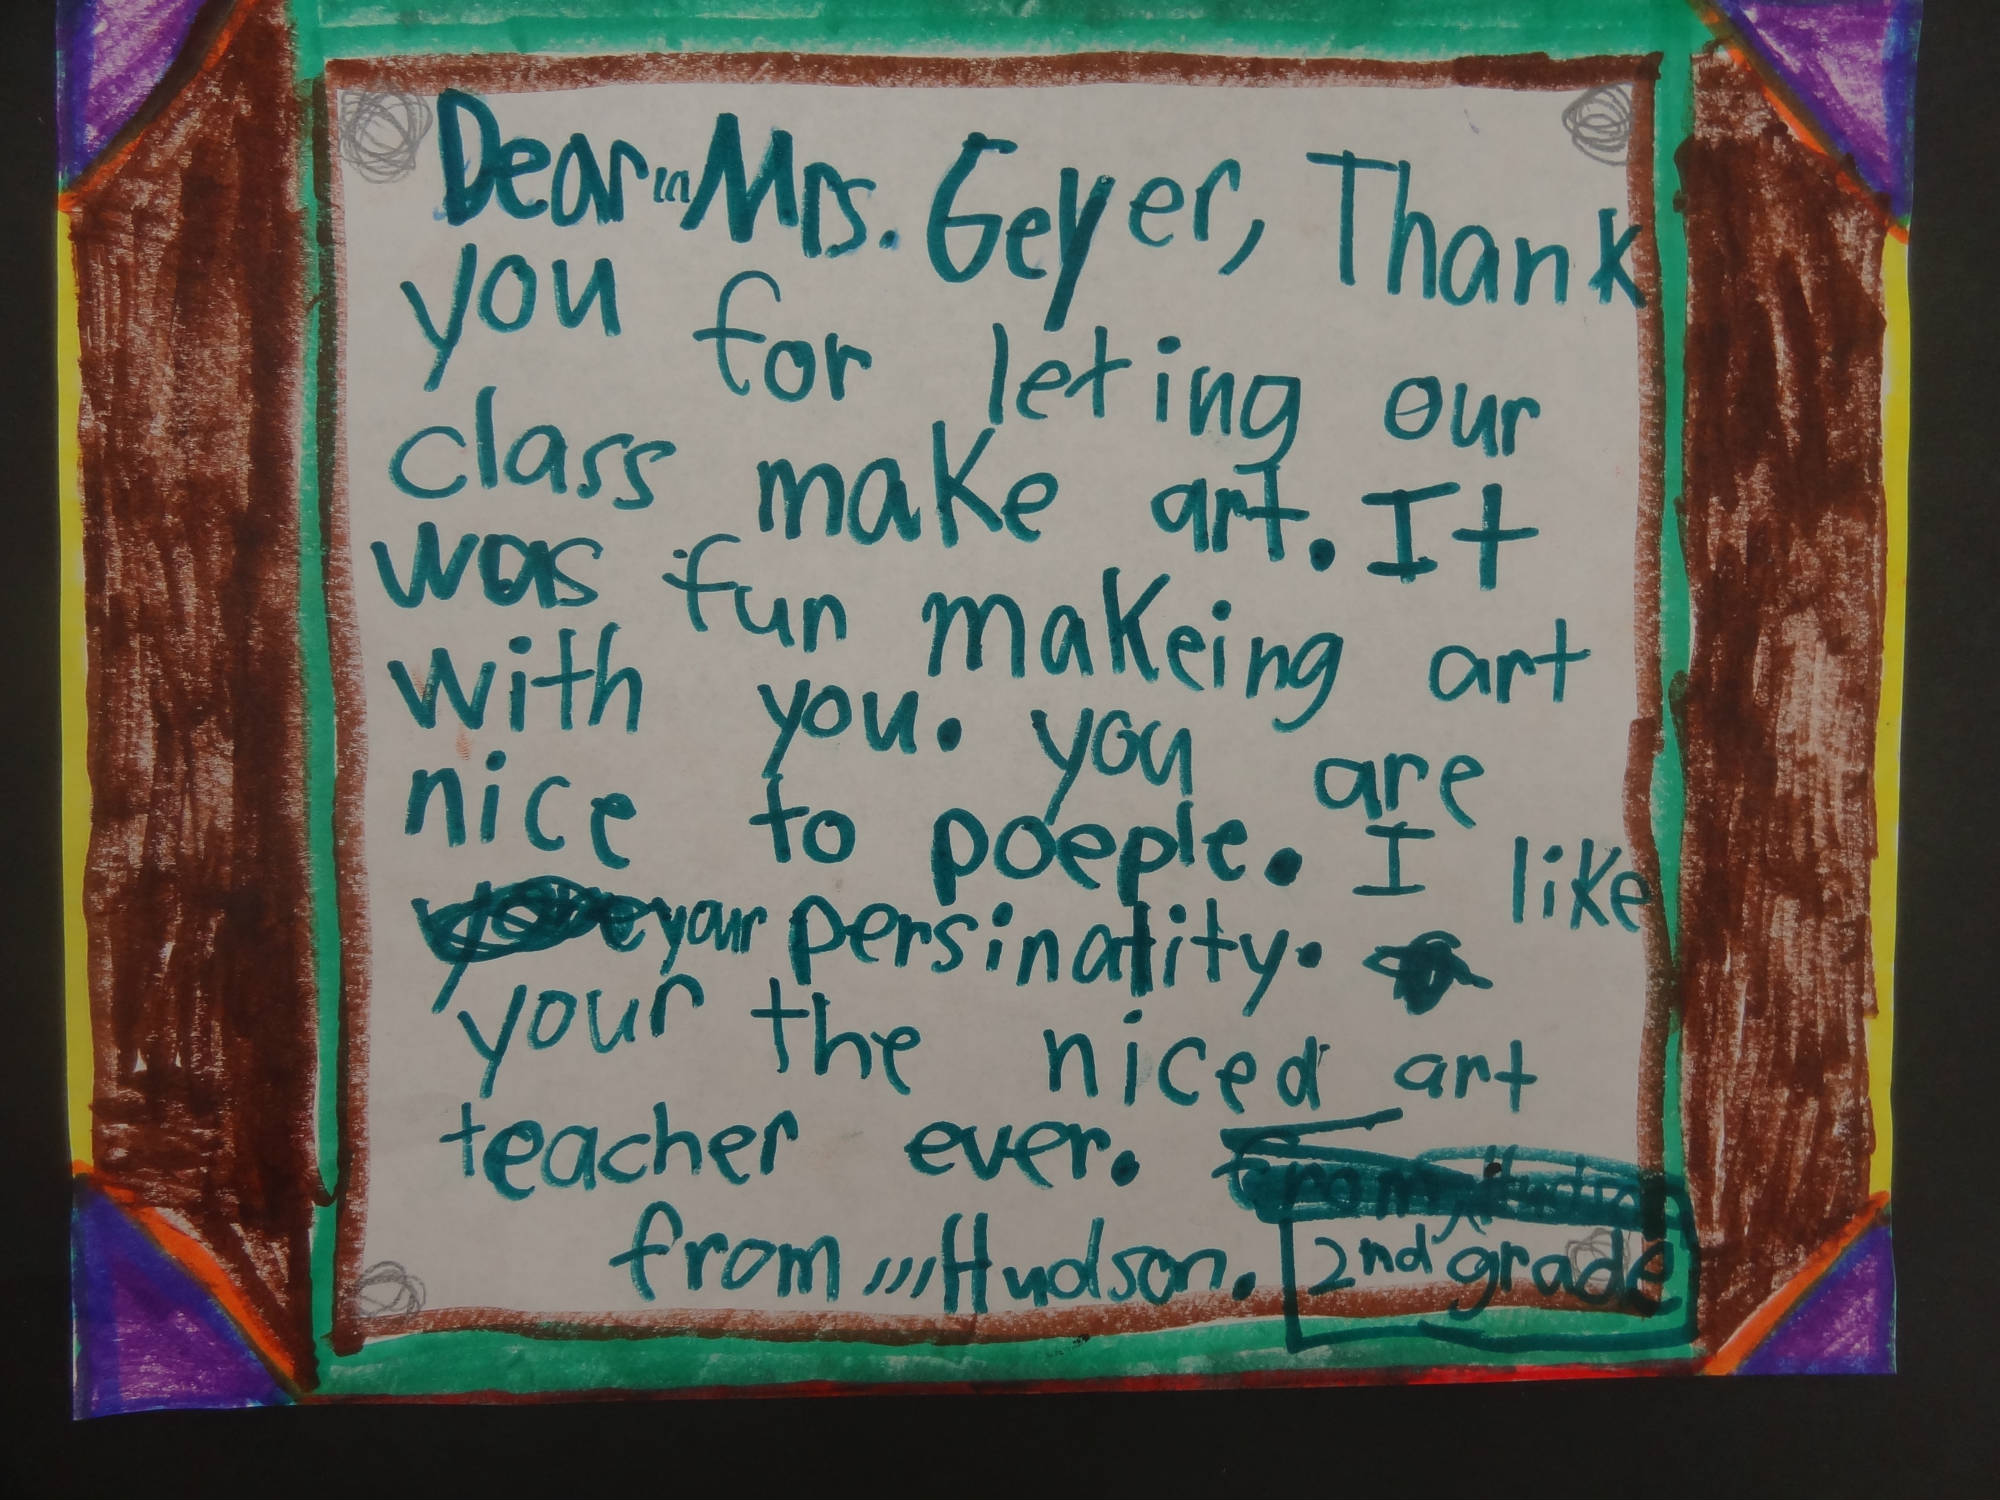 Dear,,,Mrs. Geyer, Thank
you for leting our
class make art. It
was fun makeing art
with you. you are
nice to poeple. I like
your persinality.
your the niced art
teacher ever.
from ,,,Hudson. 2nd grade